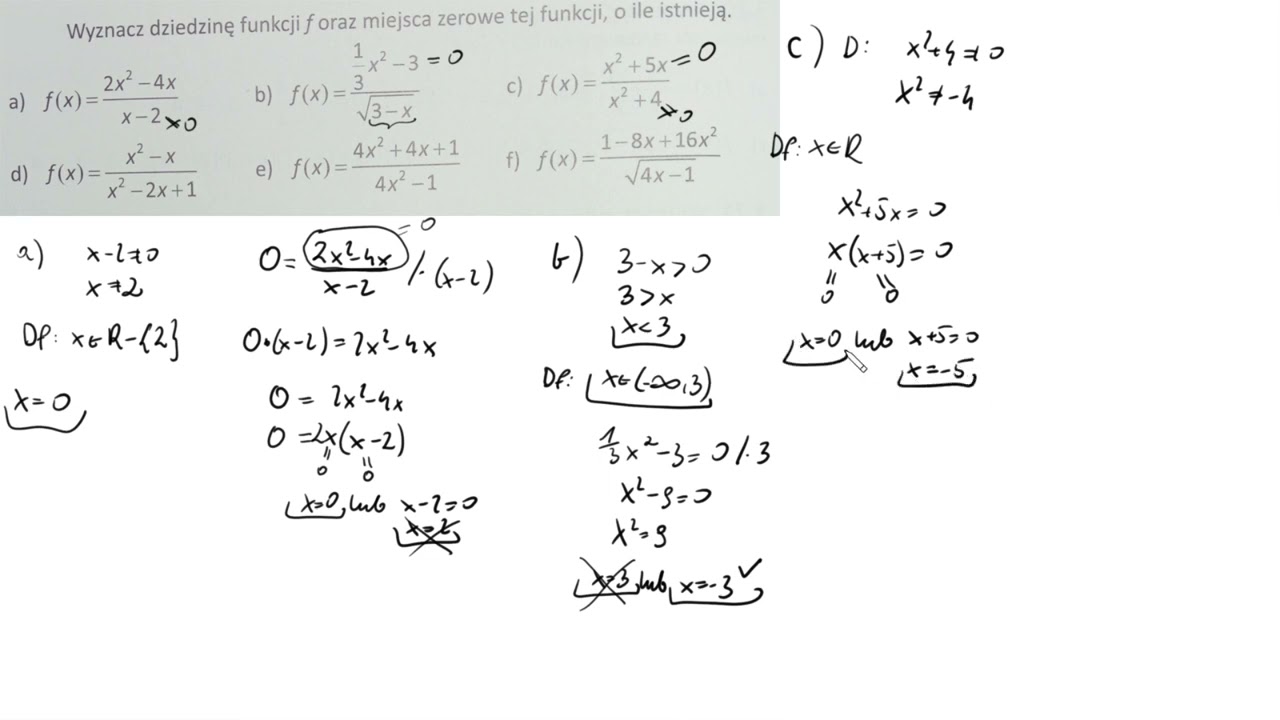 Wyznacz dziedzinę funkcji f oraz miejsca zerowe tej funkcji, o ile istnieją.
a) f(x)=\frac{2x²−4x}{x−2} ≠0
b) f(x)=\frac{\frac{1}{3}x²−3}{\sqrt{3−x}} =0
c) f(x)=\frac{x²+5x}{x²+4} =0 ≠0
d) f(x)=\frac{x²−x}{x²−2x+1}
e) f(x)=\frac{4x²+4x+1}{4x²−1}
f) f(x)=\frac{1−8x+16x²}{\sqrt{4x−1}}
a) x-2≠0
x≠2
Df: x∈R-{2}
x=0
0= \frac{2x²-4x}{x-2} /·(x-2)
=0
0·(x-2)=2x²-4x
0 = 2x²-4x
0 =2x(x-2)
0 0
x=0 lub x-2=0
x=2
b) 3-x>0
3>x
x<3
Df: x∈(-∞,3)
\frac{1}{3}x²-3=0 /·3
x²-9=0
x²=9
x=3 lub x=-3 ✓
c) D: x²+4≠0
x²≠-4
Df: x∈R
x²+5x=0
x(x+5)=0
0 0
x=0 lub x+5=0
x=-5